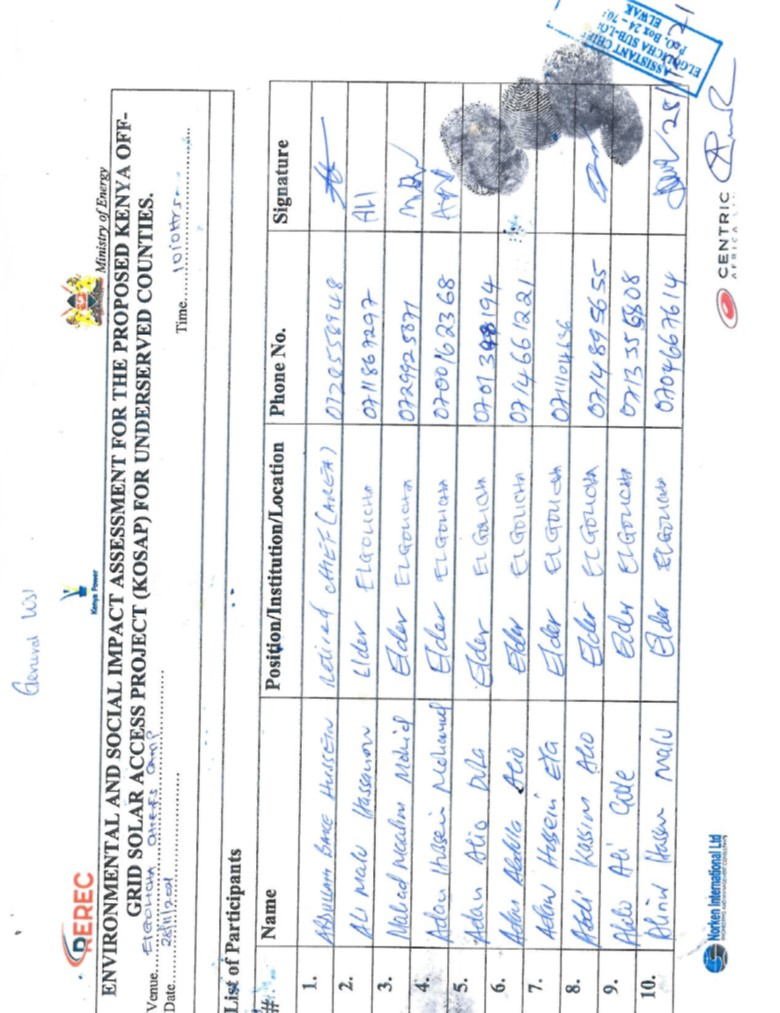 General List
REREC
Kenya Power
Ministry of Energy
ENVIRONMENTAL AND SOCIAL IMPACT ASSESSMENT FOR THE PROPOSED KENYA OFF-
GRID SOLAR ACCESS PROJECT (KOSAP) FOR UNDERSERVED COUNTIES.
Venue: Elgoucha Chiefs Camp
Date Time 1010Hrs
List of Participants
# Name Position/Institution/Location Phone No. Signature
1. Abdullahi Hussein Retired Chief (AREA) 0720558948
2. Ali Malu Hassanow Elder Elgoucha 0711867297 ALI
3. Mahad Maalim Mohid Elder Elgoucha 0729925871
4. Adan Hussein Mohamed Elder Elgoucha 0700162368
5. Adan Alio Elder Elgoucha
6. Adan Abdilla Alio Elder Elgoucha 0714661221
7. Adan Hossein Eta Elder Elgoucha 0711104636
8. Abdi Kassim Alio Elder Elgoucha 0714895655
9. Abdi Ali Gole Elder Elgoucha
10. Hassan Malu Elder Elgoucha 0704667614
ASSISTANT CHIEF
P.O. Box 24 - 70
ELWAK
Norken International Ltd
CENTRIC
AFRICA LTD